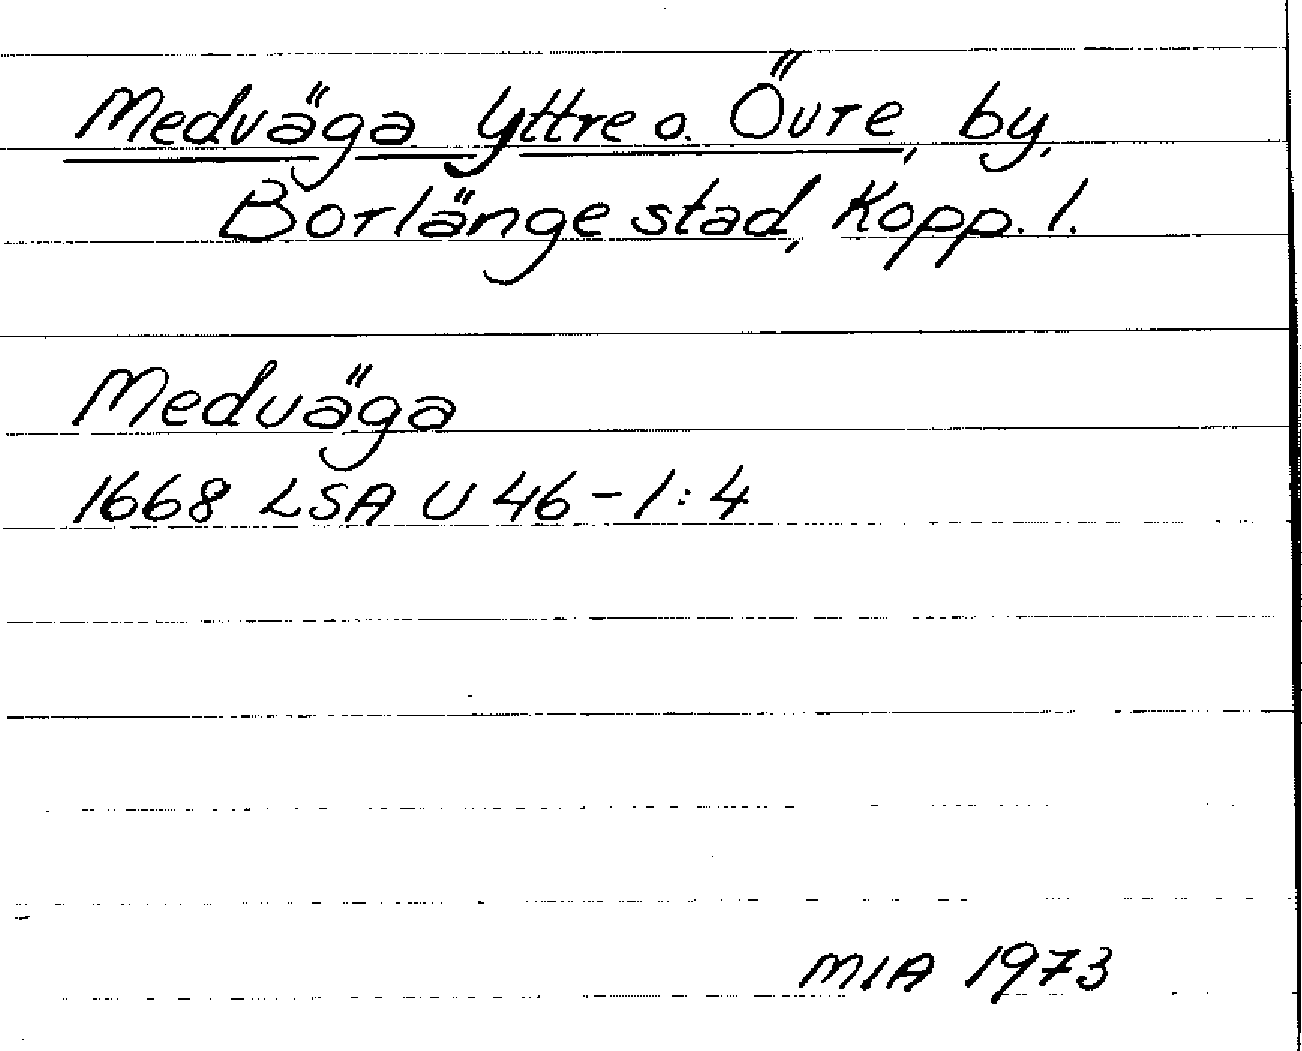 Medväga Yttre o. Övre, by,
Borlänge stad, Kopp. l.
Medväga
1668 LSA U 46-1:4
MIA 1973